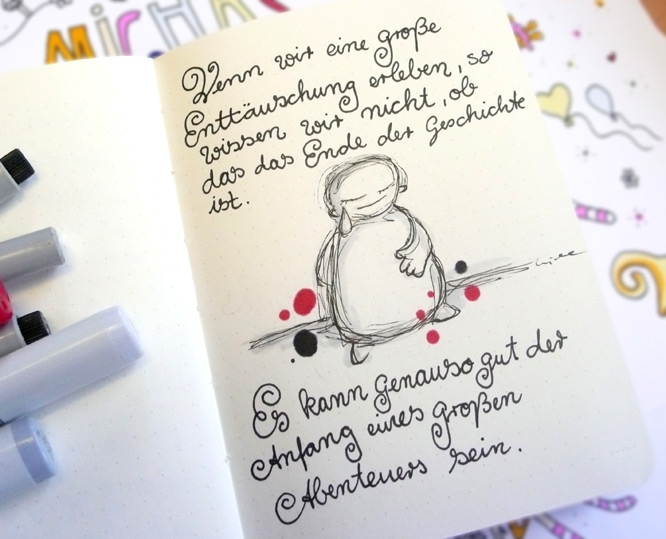 MICHA
Wenn wir eine große
Enttäuschung erleben, so
wissen wir nicht, ob
das das Ende der Geschichte
ist.
Es kann genauso gut der
Anfang eines großen
Abenteuers sein.